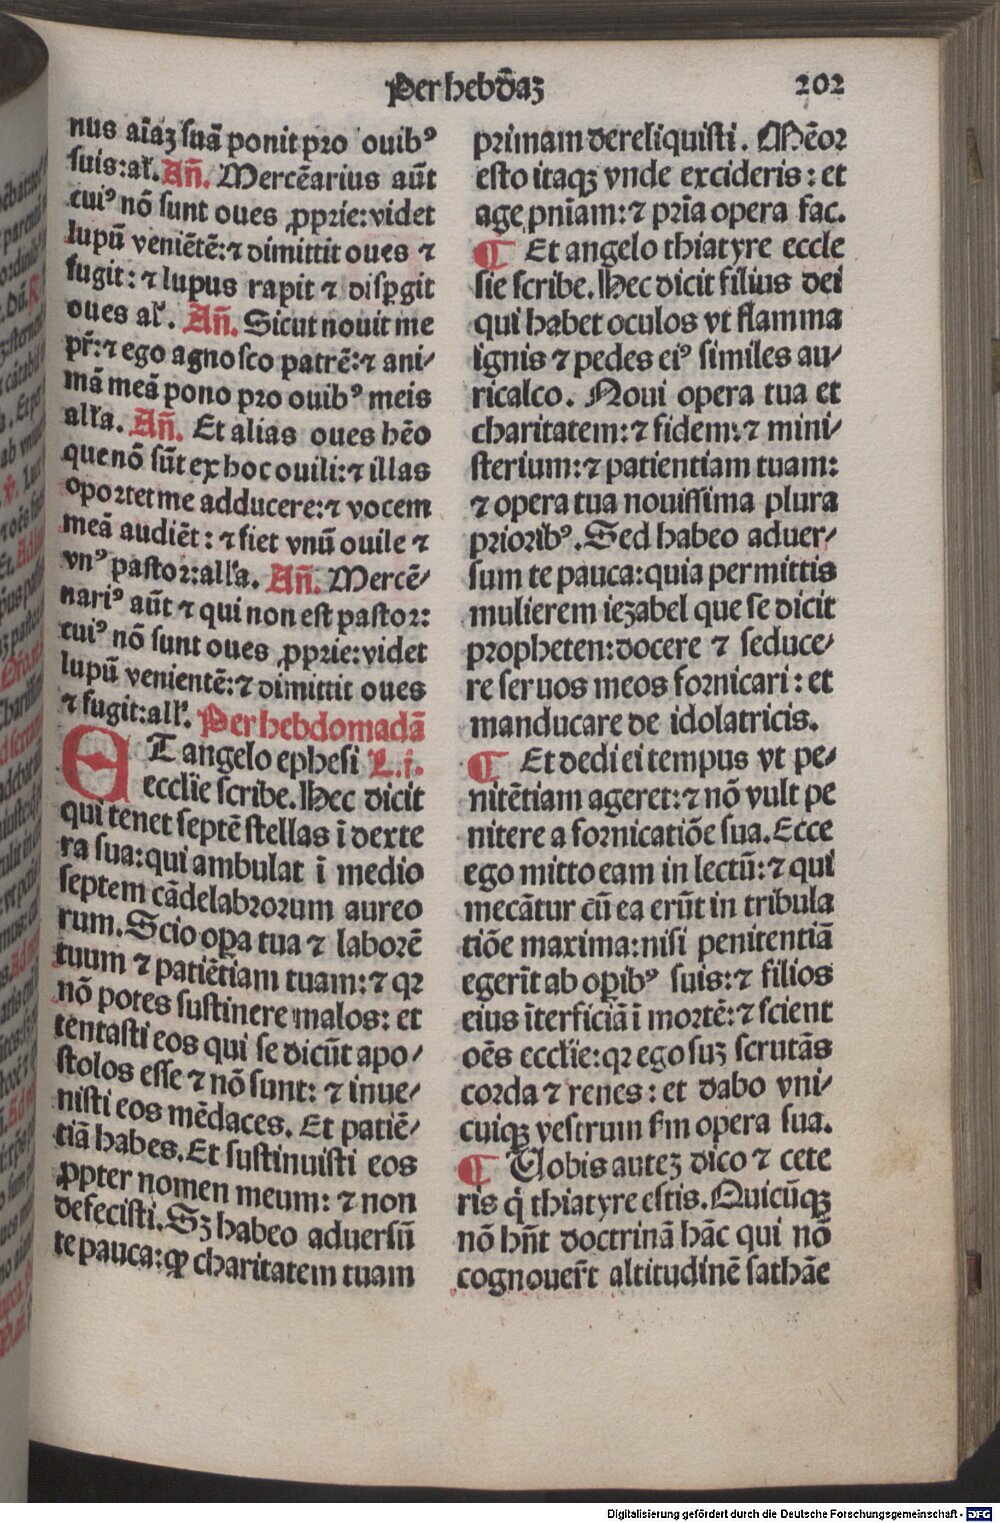 Per hebdõaꝫ
202
nus aĩaꝫ suã ponit pro ouibꝰ
suis:aľ. Añ. Mercẽarius aũt
cuiꝰ nõ sunt oues ꝓprie:videt
lupũ veniẽtẽ:⁊ dimittit oues ⁊
fugit:⁊ lupus rapit ⁊ disꝑgit
oues aľ. Añ. Sicut nouit me
pr̃:⁊ ego agnosco patrẽ:⁊ ani/
mã meã pono pro ouibꝰ meis
alľa. Añ. Et alias oues hẽo
que nõ sũt ex hoc ouili:⁊ illas
oportet me adducere:⁊ vocem
meã audiẽt:⁊ fiet vnũ ouile ⁊
vnꝰ pastor:alľa. Añ. Mercẽ/
nariꝰ aũt ⁊ qui non est pastor:
cuiꝰ nõ sunt oues ꝓprie:videt
lupũ venientẽ:⁊ dimittit oues
⁊ fugit:alľ. Per hebdomadã
ET angelo ephesi L.j.
eccľie scribe. Hec dicit
qui tenet septẽ stellas ĩ dexte
ra sua:qui ambulat ĩ medio
septem cãdelabrorum aureo
rum. Scio oꝑa tua ⁊ laborẽ
tuum ⁊ patiẽtiam tuam:⁊ qꝛ
nõ potes sustinere malos: et
tentasti eos qui se dicũt apo/
stolos esse ⁊ nõ sunt: ⁊ inue/
nisti eos mẽdaces. Et patiẽ/
tiã habes. Et sustinuisti eos
ꝓpter nomen meum: ⁊ non
defecisti. Sꝫ habeo aduersũ
te pauca:ꝙ charitatem tuam
primam dereliquisti. Mẽor
esto itaqꝫ vnde excideris: et
age pñiam:⁊ pr̃ia opera fac.
¶ Et angelo thiatyre eccle
sie scribe. Hec dicit filius dei
qui habet oculos vt flamma
ignis ⁊ pedes eiꝰ similes au/
ricalco. Noui opera tua et
charitatem:⁊ fidem:⁊ mini/
sterium:⁊ patientiam tuam:
⁊ opera tua nouissima plura
prioribꝰ. Sed habeo aduer/
sum te pauca:quia permittis
mulierem iezabel que se dicit
propheten:docere ⁊ seduce/
re seruos meos fornicari: et
manducare de idolatricis.
¶ Et dedi ei tempus vt pe/
nitẽtiam ageret:⁊ nõ vult pe
nitere a fornicatiõe sua. Ecce
ego mitto eam in lectũ:⁊ qui
mecãtur cũ ea erũt in tribula
tiõe maxima:nisi penitentiã
egerĩt ab oꝑibꝰ suis:⁊ filios
eius ĩterficiã ĩ mortẽ:⁊ scient
oẽs eccľie:qꝛ ego suꝫ scrutãs
corda ⁊ renes: et dabo vni/
cuiqꝫ vestrum ẜm opera sua.
¶ Uobis auteꝫ dico ⁊ cete
ris q̃ thiatyre estis. Quicũqꝫ
nõ hñt doctrinã hãc qui nõ
cognouer̃t altitudinẽ sathãe
Digitalisierung gefördert durch die Deutsche Forschungsgemeinschaft - DFG